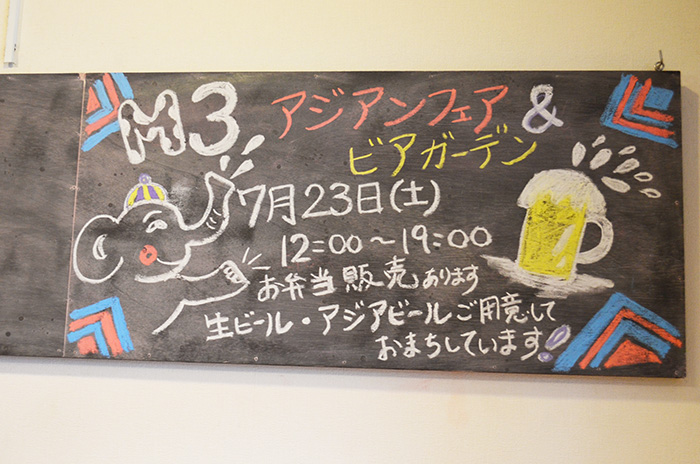 M3 アジアンフェア &
ビアガーデン
7月23日(土)
12:00〜19:00
お弁当販売あります
生ビール・アジアビールご用意して
おまちしています!!